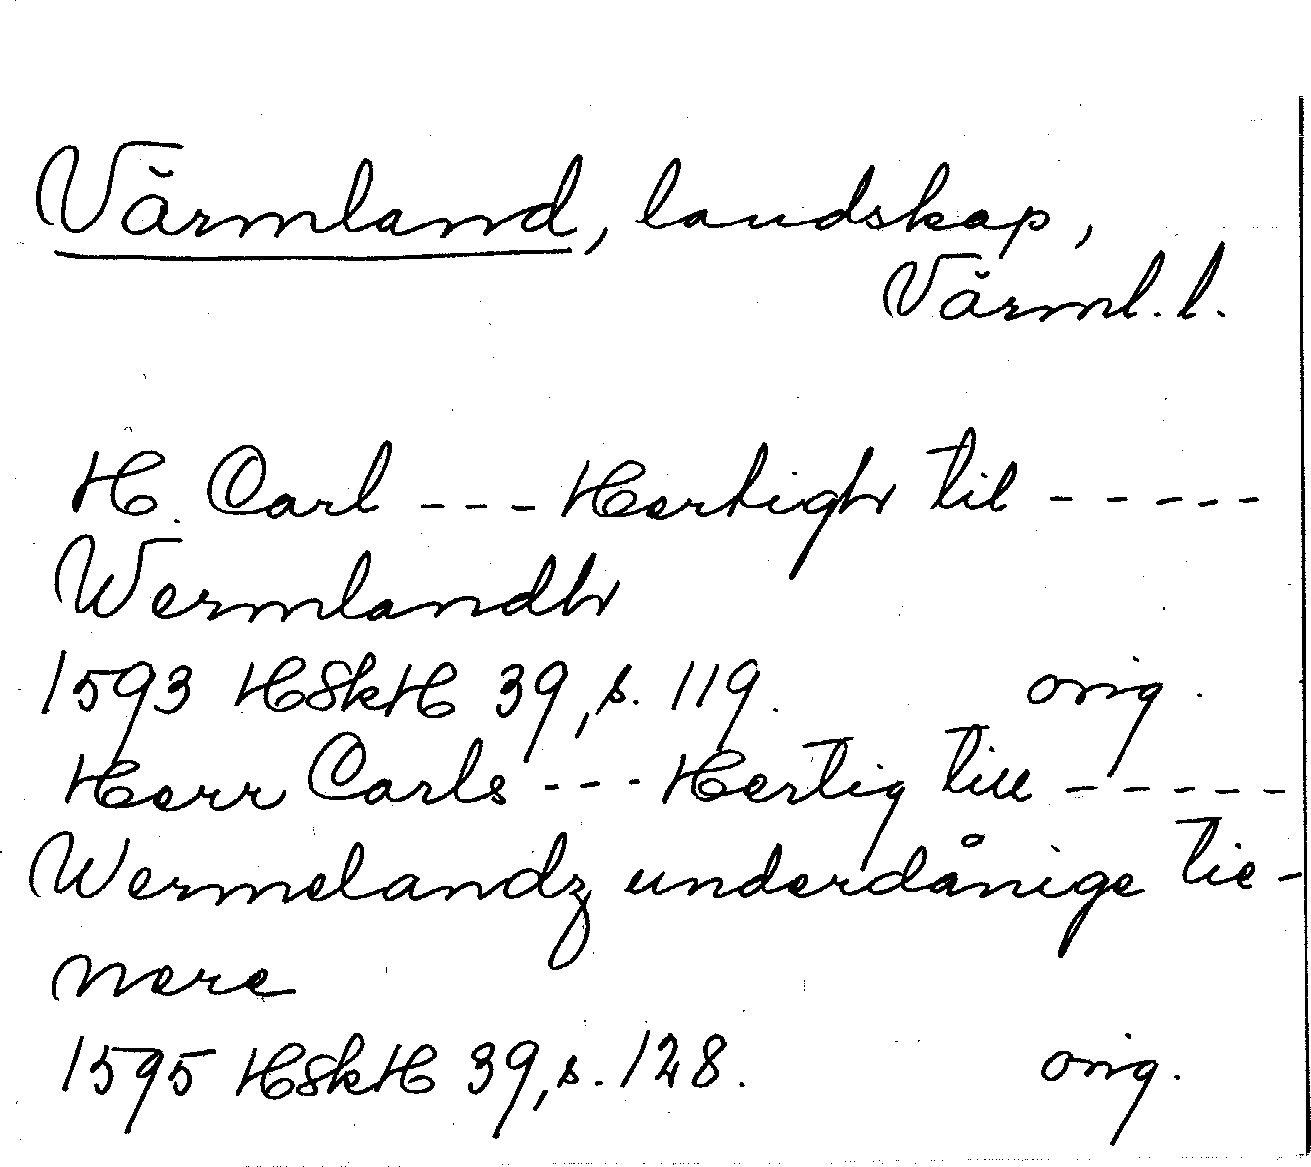 Värmland, landskap,
Värml. l.
H. Carl --- Hertigh til -----
Wermlandh
1593 HSkH 39, s. 119. orig.
Herr Carls --- Hertig till -----
Wermelandz underdånige tie-
nere
1595 HSkH 39, s. 128. orig.